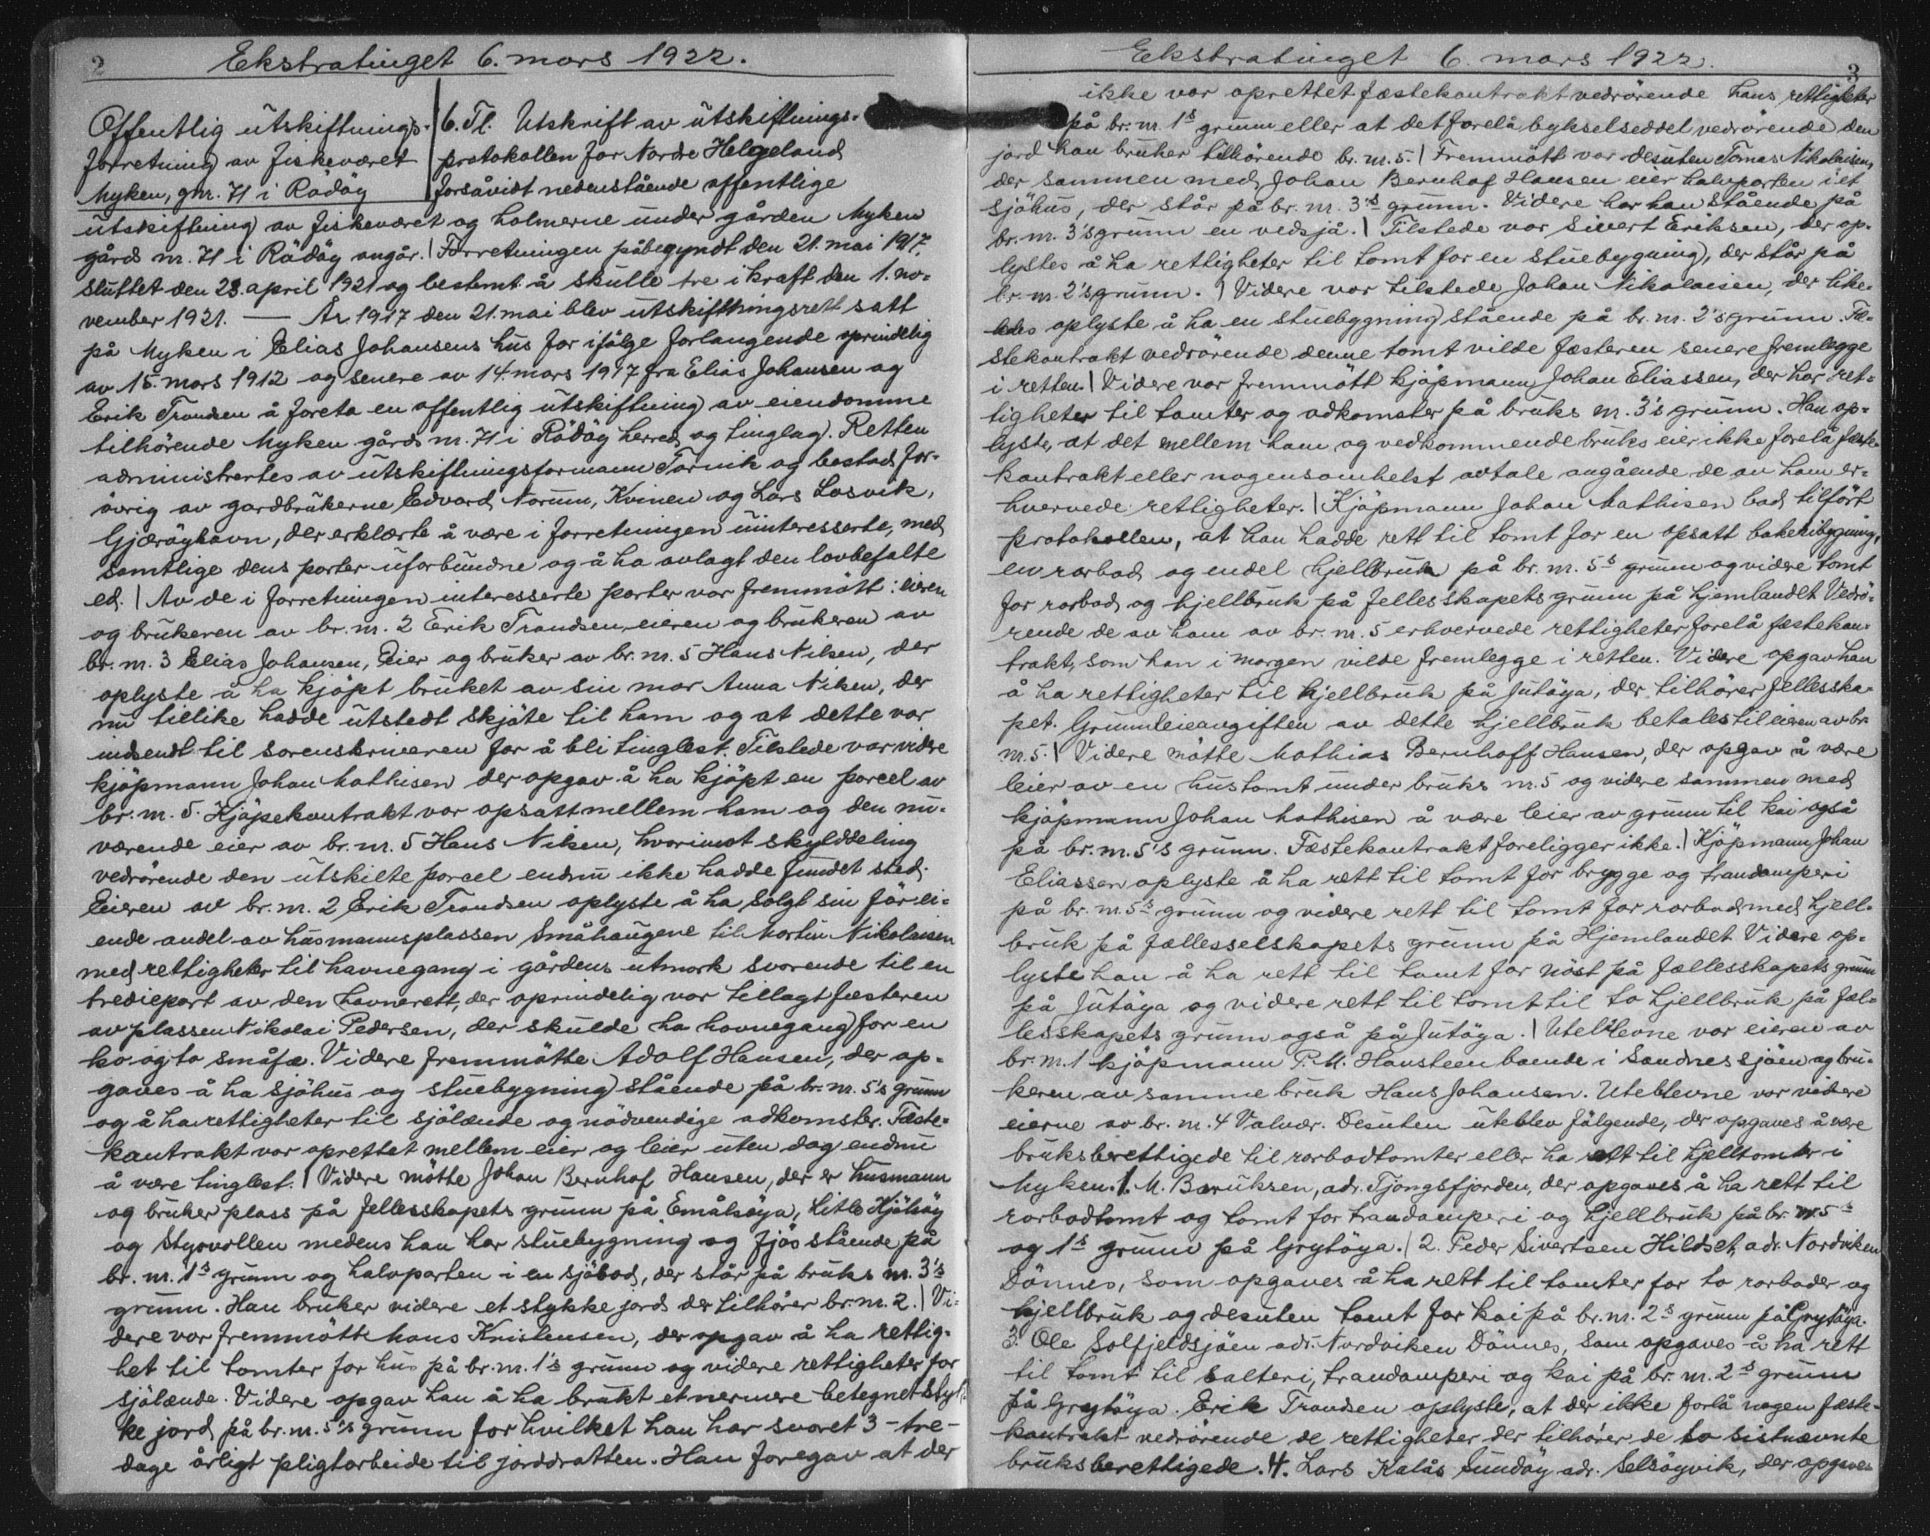 2
Ekstratinget 6. mars 1922.
Offentlig utskiftnings-
forretning av fiskeværet
Myken, gnr. 71 i Rödöy
6. Tl. Utskrift av utskiftnings-
protokollen for Nordre Helgeland
forsåvidt nedenstående offentlige
utskiftning av fiskeværet og holmerne under gården Myken
gårds nr. 71 i Rödöy angår. | Forretningen påbegyndt den 21. mai 1917,
sluttet den 23. april 1921 og bestemt å skulle tre i kraft den 1. no-
vember 1921. — År 1917 den 21. mai blev utskiftningsrett satt
på Myken i Elias Johansens hus for ifölge forlangende oprindelig
av 15. mars 1912 og senere av 14. mars 1917 fra Elias Johansen og
Erik Trondsen å foreta en offentlig utskiftning av eiendomme
tilhörende Myken gårds nr. 71 i Rödöy herred og tinglag. Retten
administrertes av utskiftningsformann Törnik og bestod for-
övrig av gardbrukerne Edvard Norum, Kvinen og Lars Losvik,
Gjæröyhavn, der erklærte å være i forretningen uinteresserte, med
samtlige dens parter uforbundne og å ha avlagt den lovbefalte
ed. | Av de i forretningen interesserte parter var fremmött: eieren
og brukeren av br. nr. 2 Erik Trondsen, eieren og brukeren av
br. nr. 3 Elias Johansen, Eier og bruker av br. nr. 5 Hans Nilsen, der
oplyste å ha kjöpt bruket av sin mor Anna Nilsen, der
nu tillike hadde utstedt skjöte til ham og at dette var
indsendt til sorenskriveren for å bli tinglest. Tilstede var vidre
kjöpmann Johan Mathisen der opgav å ha kjöpt en parcel av
br. nr. 5. Kjöpekontrakt var opsatt mellem ham og den nu-
værende eier av br. nr. 5 Hans Nilsen, hvorimot skylddeling
vedrörende den utskilte parcel endnu ikke hadde fundet sted.
Eieren av br. nr. 2 Erik Trondsen oplyste å ha solgt sin för ei-
ende andel av husmannsplassen Småhaugene til Martin Nikolaisen
med rettigheter til havnegang i gårdens utmark svarende til en
trediepart av den havnerett, der oprindelig var tillagt fæsteren
av plassen Nikolai Pedersen, der skulde ha havnegang for en
ko og to småfæ. Videre fremmötte Adolf Hansen, der op-
gaves å ha sjöhus og stuebygning stående på br. nr. 5's grunn
og å ha rettigheter til sjölænde og nödvendige adkomster. Fæste-
kontrakt var oprettet mellem eier og leier uten dog endnu
å være tinglest. | Videre mötte Johan Bernhof Hansen, der er husmann
og bruker plass på fellesskapets grunn på Emålsöya, Litle Kjölsöy
og Styrvollen medens han har stuebygning og fjös stående på
br. nr. 1s grunn og halvparten i en sjöbod, der står på bruks nr. 3's
grunn. Han bruker videre et stykke jord der tilhörer br. nr. 2. | Vi-
dere var fremmött Hans Kristensen, der opgav å ha rettig-
het til tomter for hus på br. nr. 1's grunn og videre rettigheter for
sjölænde. Videre opgav han å ha brukt et nermere betegnet styk-
ke jord på br. nr. 5's grunn for hvilket han har svaret 3 - tre -
dage årligt pligtarbeide til jorddratten. Han foregav at der
Ekstratinget 6. mars 1922.
3
ikke var oprettet fæstekontrakt vedrörende hans rettigheter
på br. nr. 1s grunn eller at det forelå bykselseddel vedrörende den
jord han bruker tilhörende br. nr. 5. | Fremmött var desuten Tomas Nikolaisen,
der sammen med Johan Bernhof Hansen eier halvparten i et
sjöhus, der står på br. nr. 3's grunn. Videre har han stående på
br. nr. 3's grunn en vedsjå. | Tilstede var Sivert Eriksen, der op-
lystes å ha rettigheter til tomt for en stuebygning, der står på
br. nr. 2's grunn. | Videre var tilstede Johan Nikolaisen, der like-
ledes oplyste å ha en stuebygning stående på br. nr. 2's grunn. Fæ-
stekontrakt vedrörende denne tomt vilde fæsteren senere fremlegge
i retten. | Videre var fremmött kjöpmann Johan Eliassen, der har ret-
tigheter til tomter og adkomster på bruks nr. 3's grunn. Han op-
lyste, at det mellem ham og vedkommende bruks eier ikke forelå fæste-
kontrakt eller nogensomhelst avtale angående de av ham er-
hvervede rettigheter. | Kjöpmann Johan Mathisen bad tilfört
protokollen, at han hadde rett til tomt for en opsatt bakeribygning,
en rorbod og endel hjellbruk på br. nr. 5s grunn og videre tomt
for rorbod og hjellbruk på fellesskapets grunn på hjemlandet. Vedrö-
rende de av ham av br. nr. 5 erhvervede rettigheter forelå fæstekon-
trakt, som han i morgen vilde fremlegge i retten. Videre opgav han
å ha rettigheter til hjellbruk på Jutöya, der tilhörer fellesska-
pet. Grunnleieavgiften av dette hjellbruk betales til eieren av br.
nr. 5. | Videre mötte Mathias Bernhoff Hansen, der opgav å være
leier av en hustomt under bruks nr. 5 og videre sammen med
kjöpmann Johan Mathisen å være leier av grunn til kai også
på br. nr. 5's grunn. Fæstekontrakt foreligger ikke. | Kjöpmann Johan
Eliassen oplyste å ha rett til tomt for brygge og trandamperi
på br. nr. 5s grunn og videre rett til tomt for rorbod med hjell-
bruk på fællesselskapets grunn på Hjemlandet. Videre op-
lyste han å ha rett til tomt for nöst på fællesskapets grunn
på Jutöya og videre rett til tomt til to hjellbruk på fæl-
lesskapets grunn også på Jutöya. | Uteblevne var eieren av
br. nr. 1 kjöpmann P. M. Hansteen boende i Sandnessjöen og bru-
keren av samme bruk Hans Johansen. Uteblevne var videre
eierne av br. nr. 4 Valvær. Desuten uteblev fölgende, der opgaves å være
bruksberettigede til rorbodtomter eller ha rett til hjelltomter i
Myken. 1. M. Baruksen, adr. Tjongsfjorden, der opgaves å ha rett til
rorbodtomt og tomt for trandamperi og hjellbruk på br. nr. 5s
og 1s grunn på Grytöya. | 2. Peder Sivertsen Hildset, adr. Nordviken
Dönnes, som opgaves å ha rett til tomter for to rorboder og
hjellbruk og desuten tomt for kai på br. nr. 2s grunn på Grytöya.
3. Ole Solfjeldsjöen adr. Nordviken Dönnes, som opgaves å ha rett
til tomt til salteri, trandamperi og kai på br. nr. 2s grunn
på Grytöya. Erik Trondsen oplyste, at der ikke forlå nogen fæste-
kontrakt vedrörende de rettigheter der tilhörer de to sistnævnte
bruksberettigede. 4. Lars Kalås Sundöy adr. Selsöyvik, der opgaves